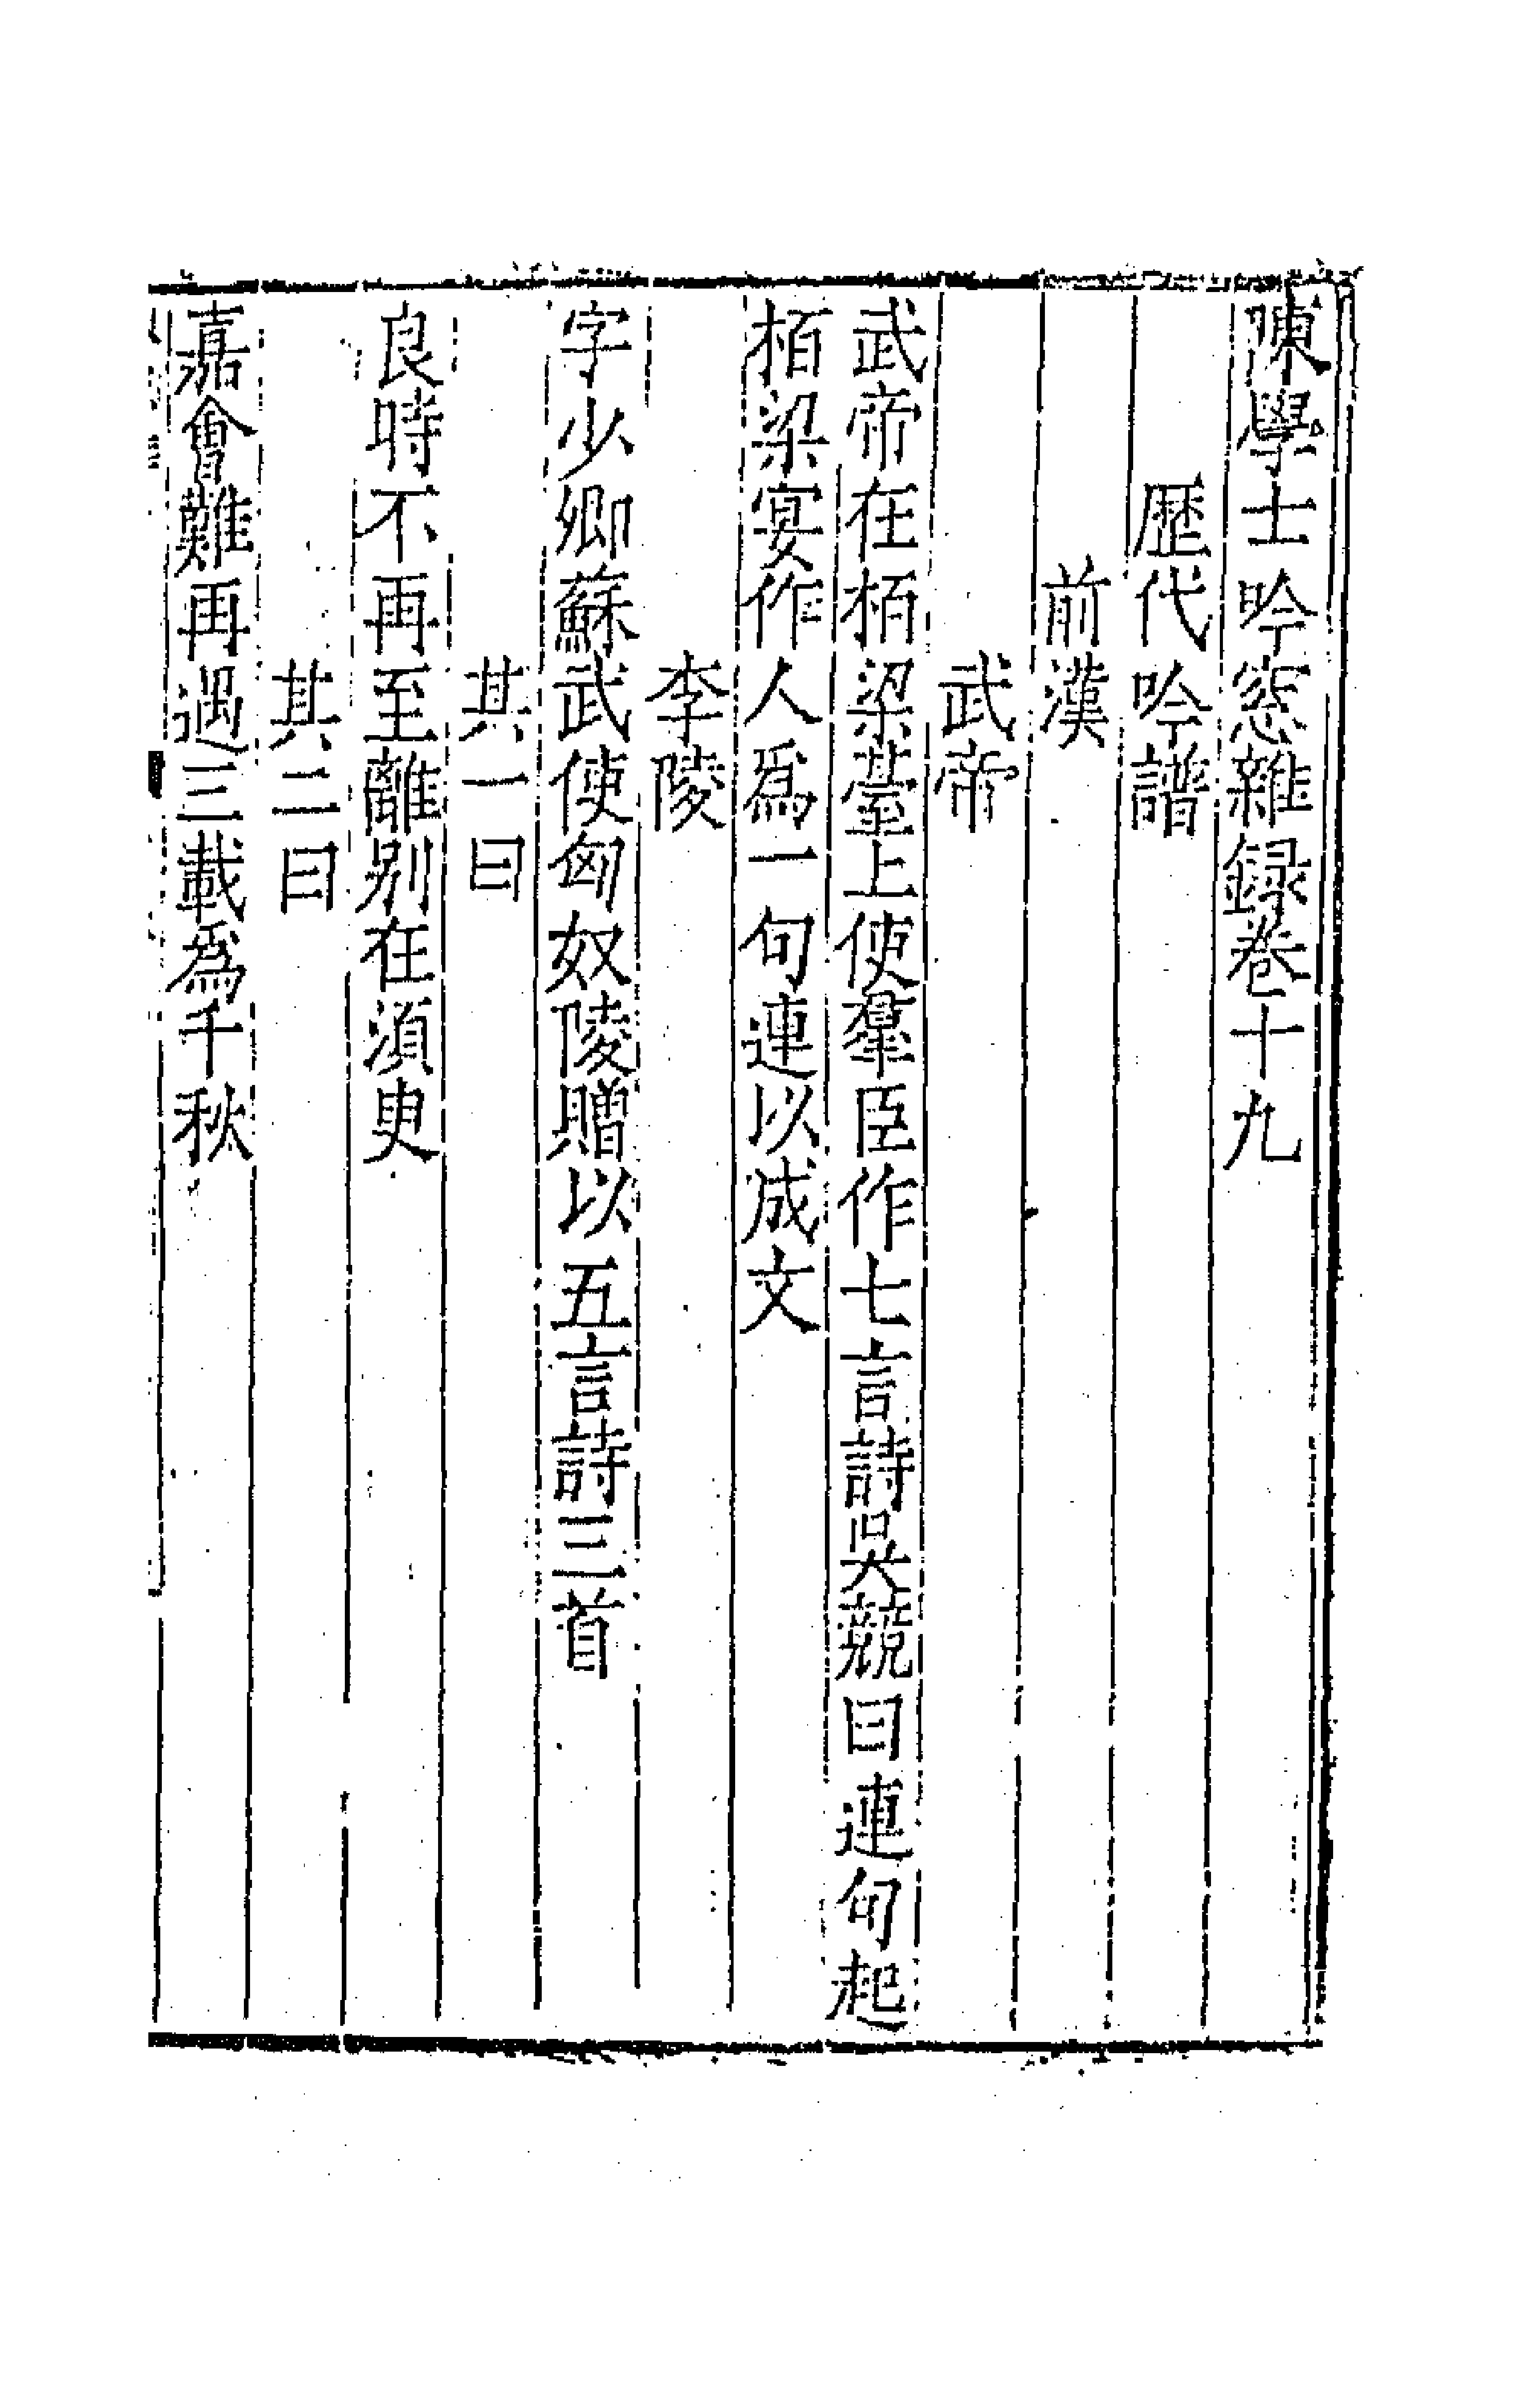 陳學士吟窓雜録卷十九
歷代吟譜
前漢
武帝
武帝在栢梁臺上使羣臣作七言詩吳兢曰連句起
栢梁宴作人爲一句連以成文
李陵
字少卿蘇武使匈奴陵贈以五言詩三首
其一曰
良時不再至離别在湏臾
其二曰
嘉會難再遇三載爲千秋